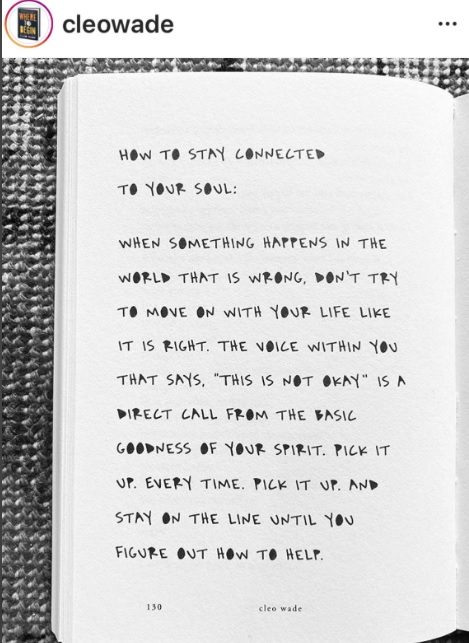 WHERE
TO
BEGIN
cleowade
HOW TO STAY CONNECTED
TO YOUR SOUL:
WHEN SOMETHING HAPPENS IN THE
WORLD THAT IS WRONG, DON'T TRY
TO MOVE ON WITH YOUR LIFE LIKE
IT IS RIGHT. THE VOICE WITHIN YOU
THAT SAYS, "THIS IS NOT OKAY" IS A
DIRECT CALL FROM THE BASIC
GOODNESS OF YOUR SPIRIT. PICK IT
UP. EVERY TIME. PICK IT UP. AND
STAY ON THE LINE UNTIL YOU
FIGURE OUT HOW TO HELP.
130 cleo wade